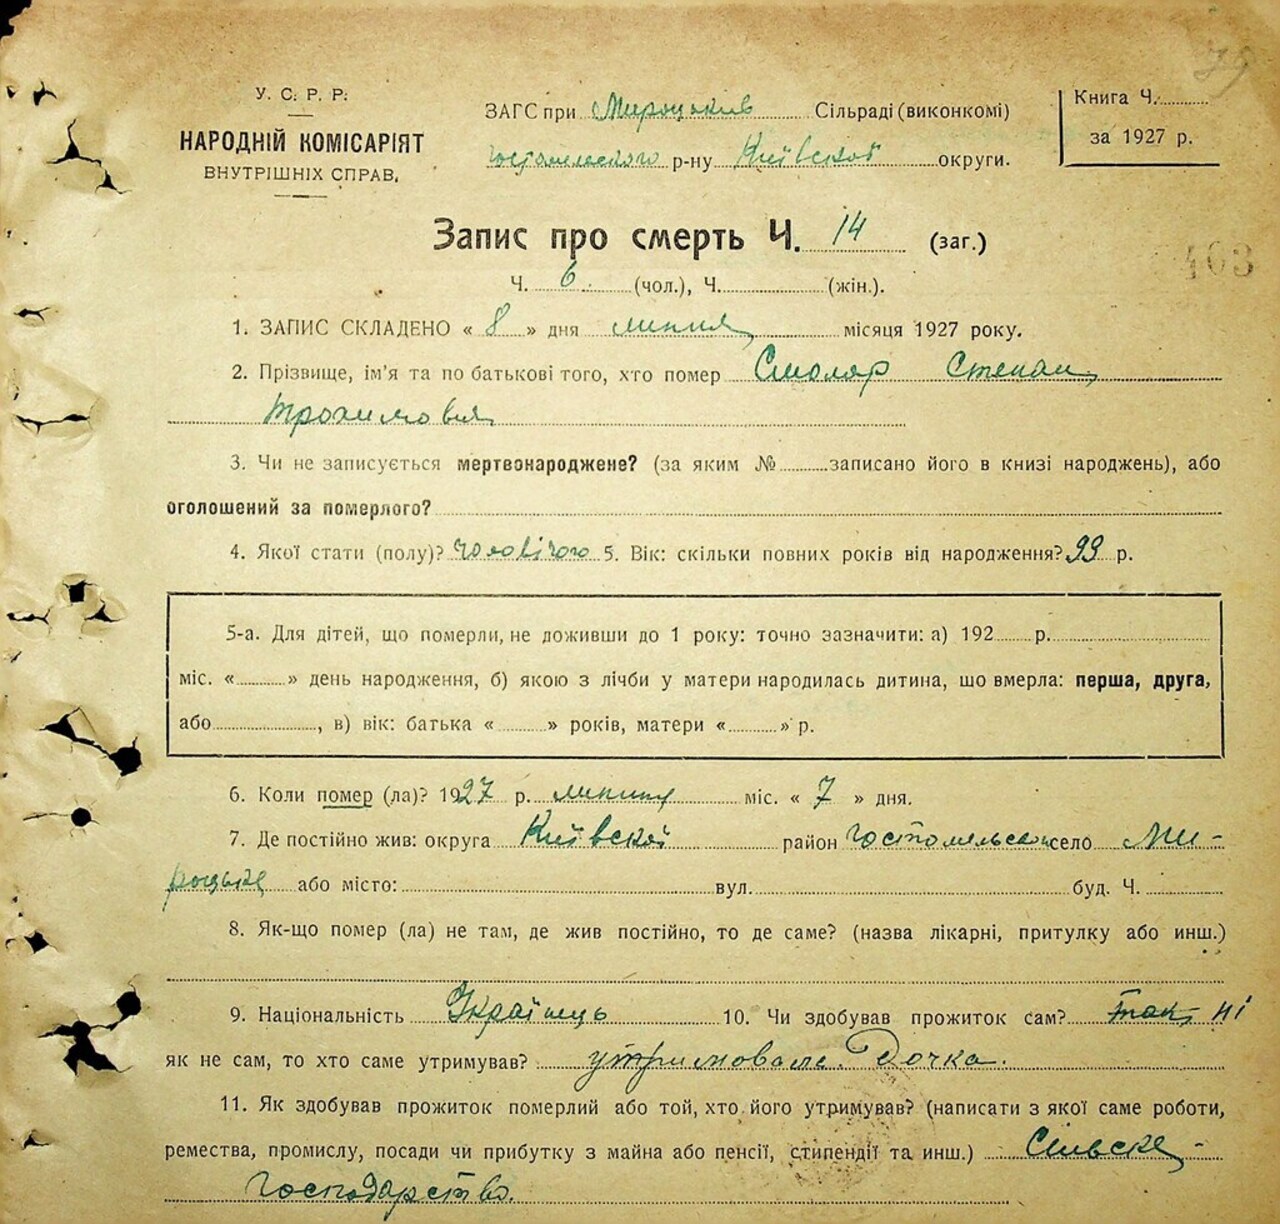 79
У. С. Р. Р.
НАРОДНІЙ КОМІСАРІЯТ
ВНУТРІШНІХ СПРАВ.
ЗАГС при Мироцькив Сільраді (виконкомі)
Гостомлеского р-ну Київскоі округи.
Книга Ч.
за 1927 р.
Запис про смерть Ч. 14 (заг.)
403
Ч. 6 (чол.), Ч. (жін.).
1. ЗАПИС СКЛАДЕНО « 8 » дня липня місяця 1927 року.
2. Прізвище, ім'я та по батькові того, хто помер Смоляр Степан
Трохимович
3. Чи не записується мертвонароджене? (за яким № записано його в книзі народжень), або
оголошений за померлого?
4. Якої стати (полу)? Чоловічого 5. Вік: скільки повних років від народження? 93 р.
5-а. Для дітей, що померли, не доживши до 1 року: точно зазначити: а) 192 р.
міс. « » день народження, б) якою з лічби у матери народилась дитина, що вмерла: перша, друга,
або , в) вік: батька « » років, матери « » р.
6. Коли помер (ла)? 1927 р. липня міс. « 7 » дня.
7. Де постійно жив: округа Київскоі район Гостомельском село Ми-
роцьке або місто: вул. буд. Ч.
8. Як-що помер (ла) не там, де жив постійно, то де саме? (назва лікарні, притулку або инш.)
9. Національність Українець 10. Чи здобував прожиток сам? так, ні
як не сам, то хто саме утримував? утримовала Дочка.
11. Як здобував прожиток померлий або той, хто його утримував? (написати з якої саме роботи,
ремества, промислу, посади чи прибутку з майна або пенсії, стипендії та инш.) Сільске-
Господарство.